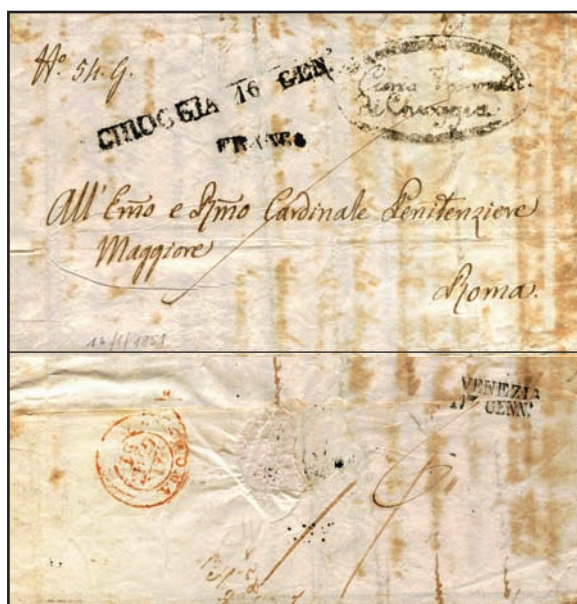 N.º 54. G.
CHIOGGIA 16 GEN.
FRANCA
Curia Vescovile
di Chioggia
All' Emo e Rmo Cardinale Penitenziere
Maggiore
Roma.
16/1/1851
VENEZIA
17 GENN.
ROMA